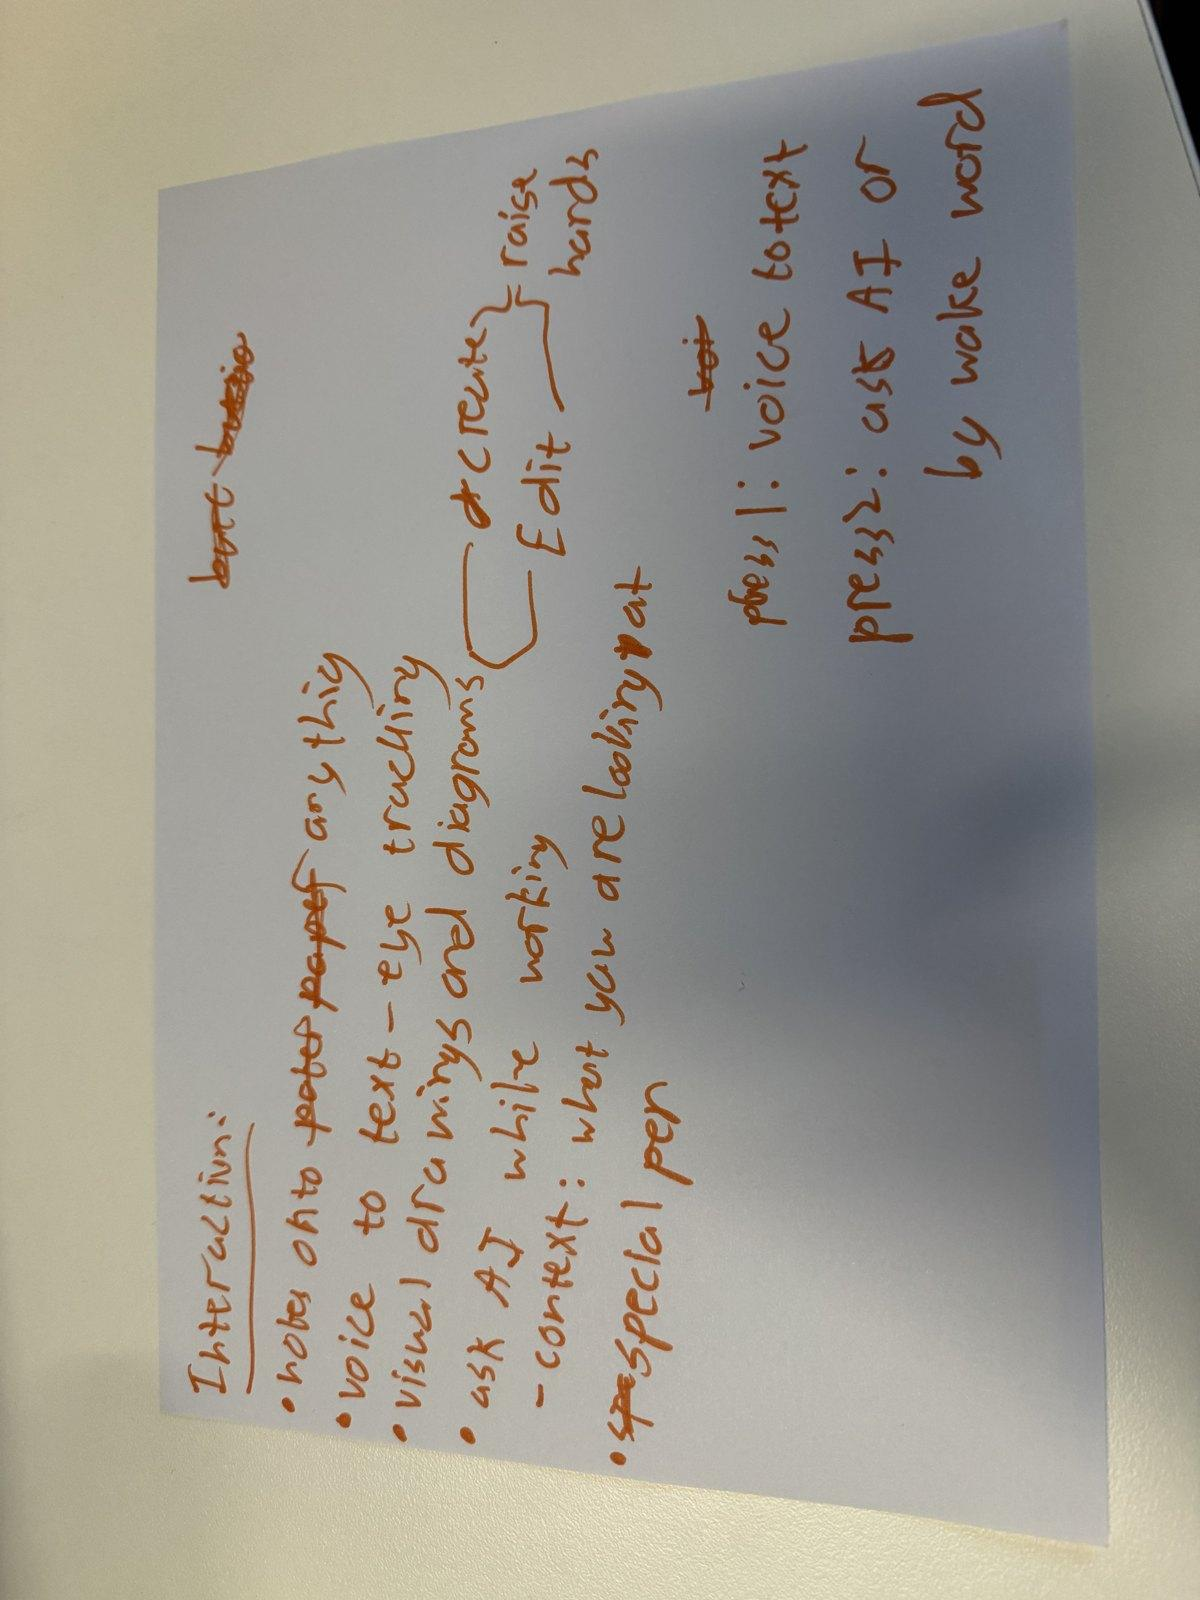 Interaction:
• notes onto anything
• voice to text - eye tracking
• visual drawings and diagrams
create } = raise
Edit hands
• ask AI while working
- context: what you are looking at
• special pen
press 1: voice to text
press 2: ask AI or
by wake word